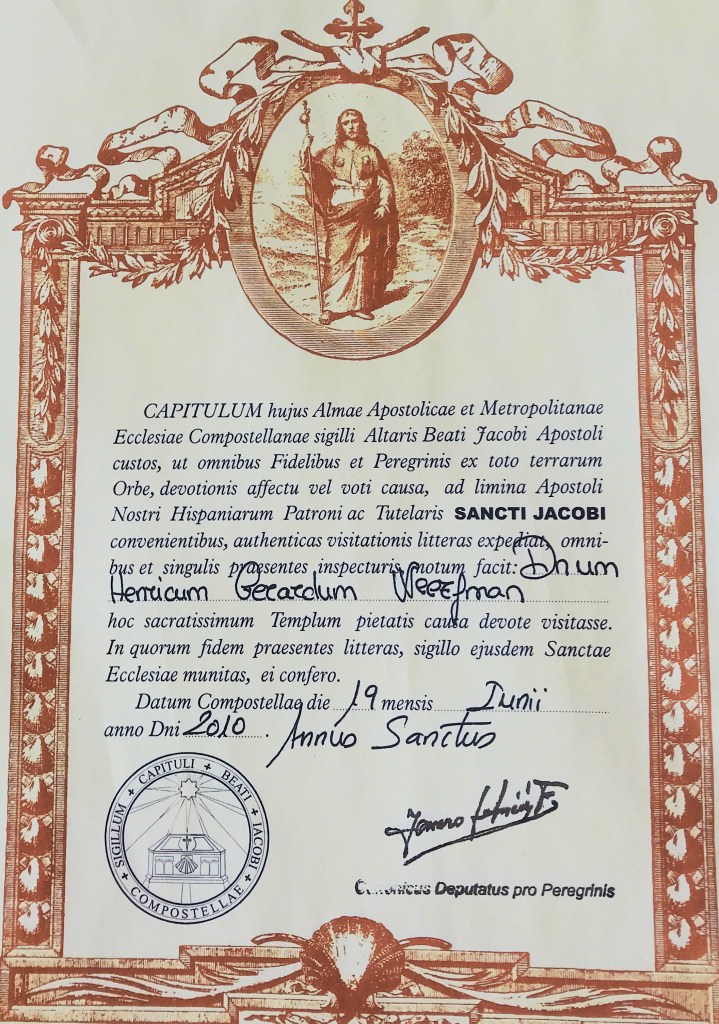 CAPITULUM hujus Almae Apostolicae et Metropolitanae
Ecclesiae Compostellanae sigilli Altaris Beati Jacobi Apostoli
custos, ut omnibus Fidelibus et Peregrinis ex toto terrarum
Orbe, devotionis affectu vel voti causa, ad limina Apostoli
Nostri Hispaniarum Patroni ac Tutelaris SANCTI JACOBI
convenientibus, authenticas visitationis litteras expediat, omni-
bus et singulis praesentes inspecturis, notum facit: Dnum
Henricum Gerardum
hoc sacratissimum Templum pietatis causa devote visitasse.
In quorum fidem praesentes litteras, sigillo ejusdem Sanctae
Ecclesiae munitas, ei confero.
Datum Compostellae die 19 mensis Iunii
anno Dni 2010. Annuo Sanctus
SIGILLUM + CAPITULI + BEATI + IACOBI + COMPOSTELLAE +
Canonicus Deputatus pro Peregrinis